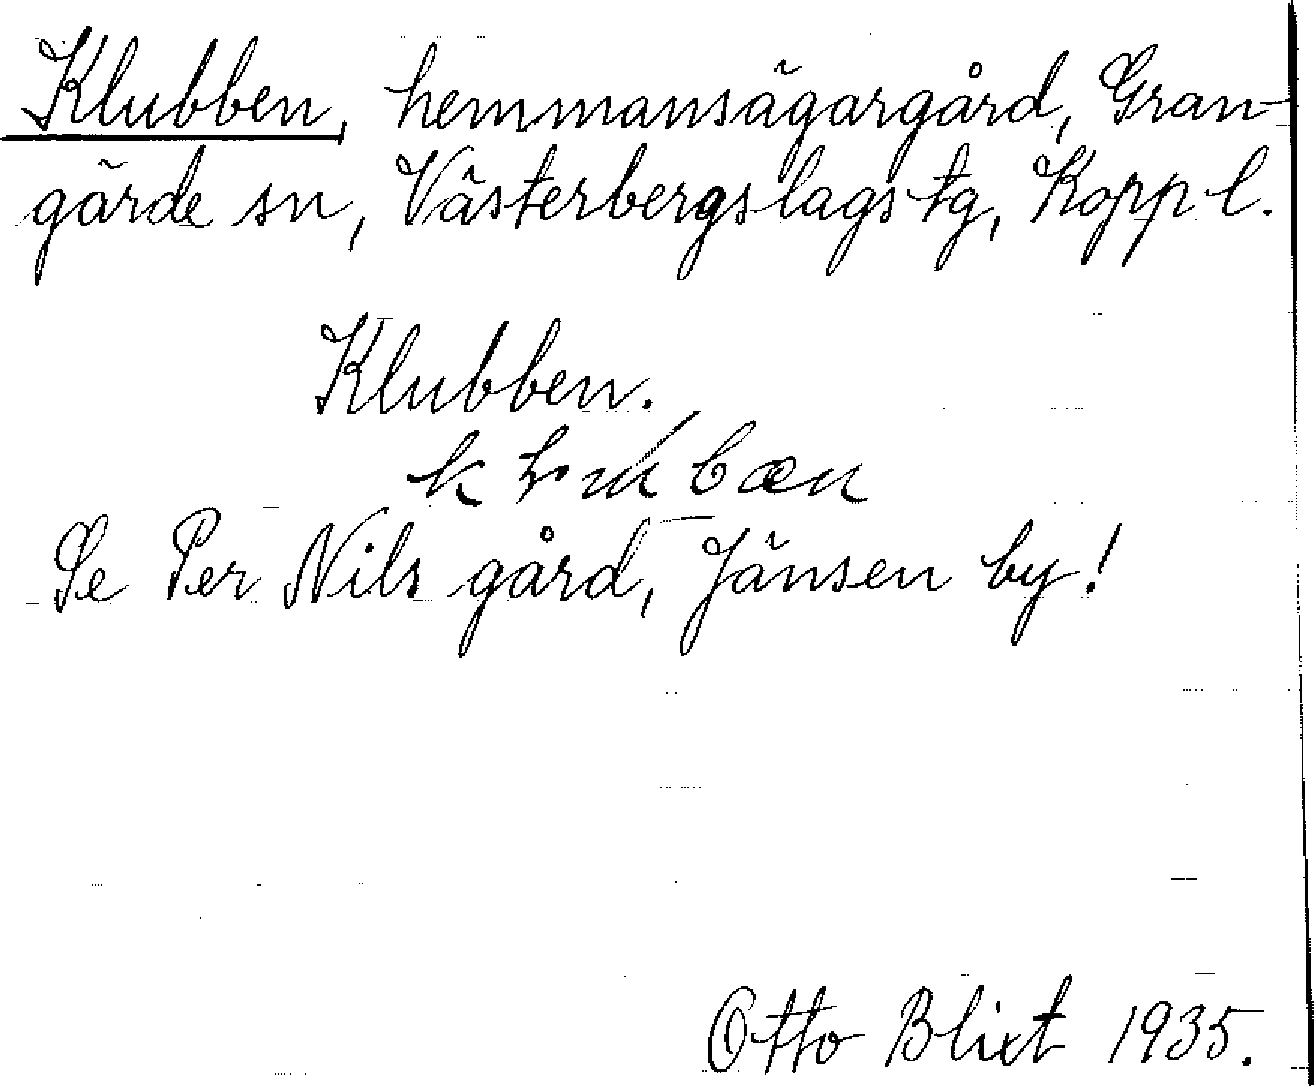 Klubben, hemmansägargård, Gran-
gärde sn, Västerbergslags tg, Kopp l.
Klubben.
Se Per Nils gård, Jänsen by!
Otto Blixt 1935.